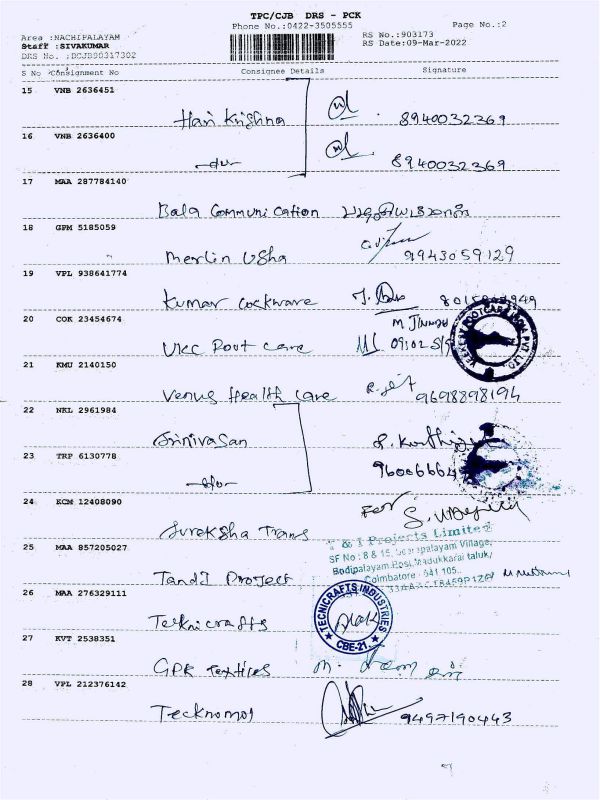 TPC/CJB DRS - PCK
Phone No.:0422-3505555 Page No.:2
Area :NACHIPALAYAM RS No.:903173
Staff :SIVAKUMAR RS Date:09-Mar-2022
DRS No. :DCJB90317302
S No Consignment No Consignee Details Signature
15 VNB 2636451
Hari Krishna 8940032369
16 VNB 2636400
-do- 8940032369
17 MAA 287784140
Bala Communication
18 GPM 5185059
Merlin Usha 9943059129
19 VPL 938641774
Kumar Cockware
20 COK 23454674
M JINNAH
VKC Foot care
21 KMU 2140150
Venus Health Care 9698898194
22 NKL 2961984
Srinivasan
23 TRP 6130778
-do-
24 KCM 12408090
For
Sureksha Trans
T & I Projects Limited
25 MAA 857205027
SF No : 8 & 15, Village,
Bodipalayam Post, Madukkarai taluk,
Coimbatore - 641 105.
Tandi Project
26 MAA 276329111
TECNICRAFTS INDUSTRIES
Teknicrafts
CBE-21.
27 KVT 2538351
GPR Textiles
28 VPL 212376142
Tecknomos 9497190443